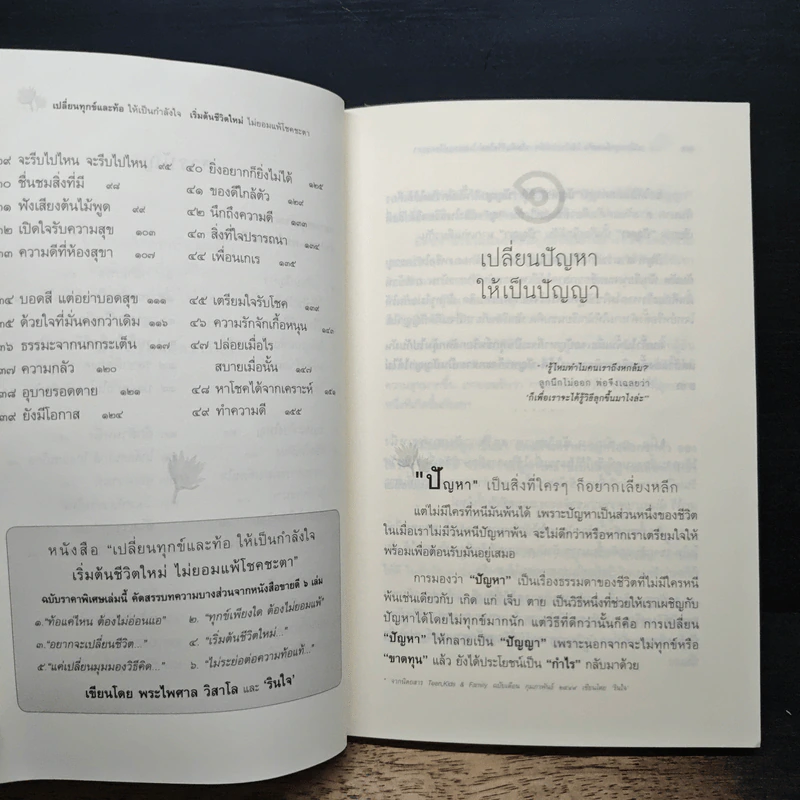 เปลี่ยนทุกข์และท้อ ให้เป็นกำลังใจ เริ่มต้นชีวิตใหม่ ไม่ยอมแพ้โชคชะตา
๒๙ จะรีบไปไหน จะรีบไปไหน ๙๕
๓๐ ชื่นชมสิ่งที่มี ๙๘
๓๑ ฟังเสียงต้นไม้พูด ๙๙
๓๒ เปิดใจรับความสุข ๑๐๓
๓๓ ความดีที่ห้องสุขา ๑๐๗
๓๔ บอดสี แต่อย่าบอดสุข ๑๑๑
๓๕ ด้วยใจที่มั่นคงกว่าเดิม ๑๑๖
๓๖ ธรรมะจากนกกระเต็น ๑๑๗
๓๗ ความกลัว ๑๒๐
๓๘ อุบายรอดตาย ๑๒๑
๓๙ ยังมีโอกาส ๑๒๔
๔๐ ยิ่งอยากก็ยิ่งไม่ได้ ๑๒๕
๔๑ ของดีใกล้ตัว ๑๒๙
๔๒ นึกถึงความดี ๑๓๓
๔๓ สิ่งที่ใจปรารถนา ๑๓๔
๔๔ เพื่อนเกเร ๑๓๕
๔๕ เตรียมใจรับโชค ๑๓๙
๔๖ ความรักจักเกื้อหนุน ๑๔๖
๔๗ ปล่อยเมื่อไร
สบายเมื่อนั้น ๑๔๗
๔๘ หาโชคได้จากเคราะห์ ๑๕๑
๔๙ ทำความดี ๑๕๕
หนังสือ "เปลี่ยนทุกข์และท้อ ให้เป็นกำลังใจ
เริ่มต้นชีวิตใหม่ ไม่ยอมแพ้โชคชะตา"
ฉบับราคาพิเศษเล่มนี้ คัดสรรบทความบางส่วนจากหนังสือขายดี ๖ เล่ม
๑."ท้อแค่ไหน ต้องไม่อ่อนแอ" ๒. "ทุกข์เพียงใด ต้องไม่ยอมแพ้"
๓."อยากจะเปลี่ยนชีวิต..." ๔. "เริ่มต้นชีวิตใหม่..."
๕."แค่เปลี่ยนมุมมองวิธีคิด..." ๖. "ไม่ระย่อต่อความท้อแท้..."
เขียนโดย พระไพศาล วิสาโล และ 'รินใจ'
๑
เปลี่ยนปัญหา
ให้เป็นปัญญา
"รู้ไหมทำไมคนเราถึงหกล้ม?
ลูกนึกไม่ออก พ่อจึงเฉลยว่า
'ก็เพื่อเราจะได้รู้วิธีลุกขึ้นมาไงล่ะ'"
"ปัญหา" เป็นสิ่งที่ใครๆ ก็อยากเลี่ยงหลีก
แต่ไม่มีใครที่หนีมันพ้นได้ เพราะปัญหาเป็นส่วนหนึ่งของชีวิต
ในเมื่อเราไม่มีวันหนีปัญหาพ้น จะไม่ดีกว่าหรือหากเราเตรียมใจให้
พร้อมเพื่อต้อนรับมันอยู่เสมอ
การมองว่า "ปัญหา" เป็นเรื่องธรรมดาของชีวิตที่ไม่มีใครหนี
พ้นเช่นเดียวกับ เกิด แก่ เจ็บ ตาย เป็นวิธีหนึ่งที่ช่วยให้เราเผชิญกับ
ปัญหาได้โดยไม่ทุกข์มากนัก แต่วิธีที่ดีกว่านั้นก็คือ การเปลี่ยน
"ปัญหา" ให้กลายเป็น "ปัญญา" เพราะนอกจากจะไม่ทุกข์หรือ
"ขาดทุน" แล้ว ยังได้ประโยชน์เป็น "กำไร" กลับมาด้วย
* จากนิตยสาร Teen,Kids & Family ฉบับเดือน กุมภาพันธ์ ๒๕๔๙ เขียนโดย รินใจ